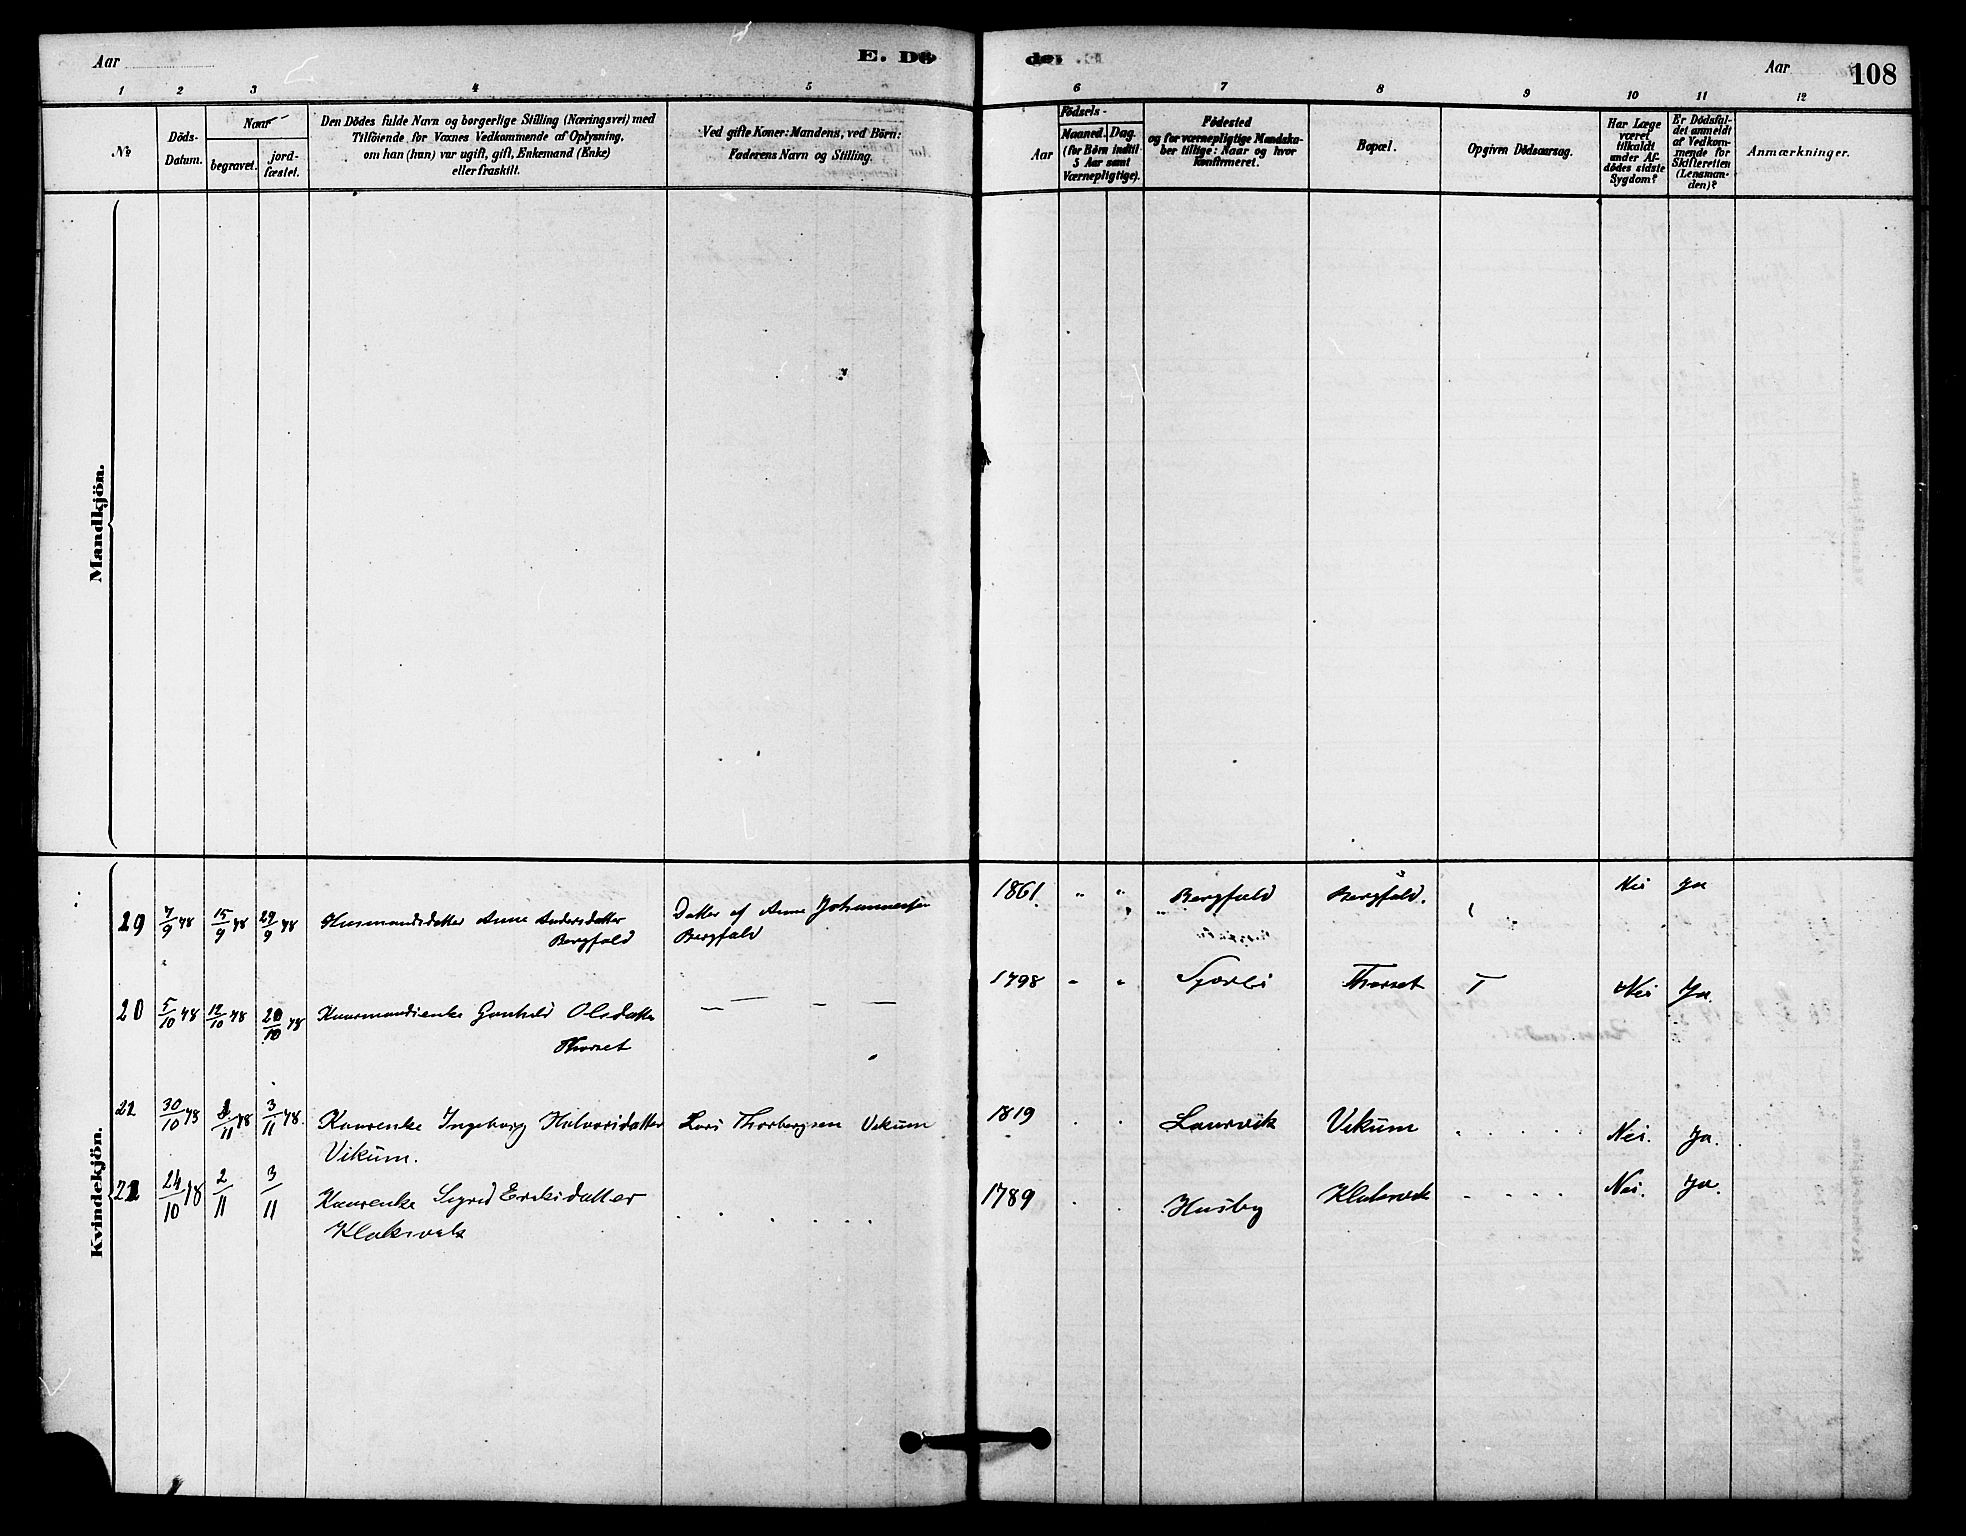 Aar
E. Dö
1 2 3 4 5
Nº
Döds-
Datum.
Naar
begravet.
jord-
fæstet.
Den Dödes fulde Navn og borgerlige Stilling (Næringsvei) med
Tilföiende for Voxnes Vedkommende af Oplysning,
om han (hun) var ugift, gift, Enkemand (Enke)
eller fraskilt.
Ved gifte Koner: Mandens, ved Börn:
Faderens Navn og Stilling.
Mandkjön.
Kvindekjön.
19 7/9 78 15/9 78 29/9 78 Husmandsdatter Anne Andersdatter Datter af Anne Johannesen
Bergfald Bergfald
20 5/10 78 12/10 78 20/10 78 Gunhild Olsdatter — — —
Thorset
21 30/10 78 11 78 3/11 78. Kaarenke Ingeborg Halvorsdatter Lars Thorbergsen Vikum
Vikum.
22 24/10 78 2/11 3/11 Kaarenke Sigrid Eriksdatter
Klaksvik
der
Aar
108
6 7 8 9 10 11 12
Aar
Födsels-
Maaned. Dag.
(for Börn indtil
5 Aar samt
Værnepligtige).
Födested
og for værnepligtige Mandska-
ber tillige: Naar og hvor
konfirmeret.
Bopæl.
Opgiven Dödsaarsag.
Har Læge
været
tilkaldt
under Af-
dödes sidste
Sygdom?
Er Dödsfal-
det anmeldt
af Vedkom-
mende for
Skifteretten
(Lensman-
den)?
Anmærkninger.
1861 " " Bergfald Bergfald. Nei Ja
1798 " " Thorset Nei Ja.
1819 Laurvik Vikum Nei. Ja.
1789 Husby Klaksvik Nei. Ja.